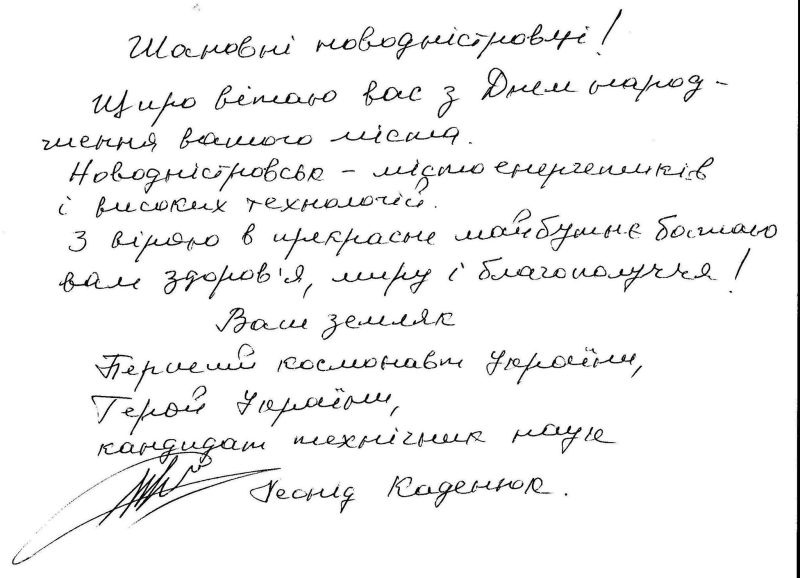 Шановні новодністровці!
Щиро вітаю вас з Днем народ-
ження вашого міста.
Новодністровськ - місто енергетиків
і високих технологій.
З вірою в прекрасне майбутнє бажаю
вам здоров'я, миру і благополуччя!
Ваш земляк
Перший космонавт України,
Герой України,
кандидат технічних наук
Леонід Каденюк.